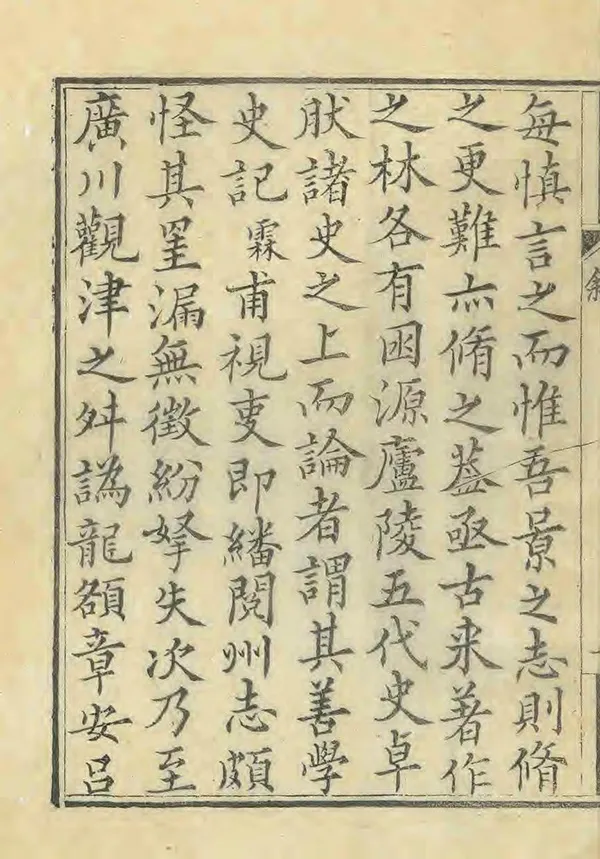 每慎言之而惟吾景之志則脩
之更難亦脩之葢亟古来著作
之林各有囦源廬陵五代史卓
肰諸史之上而論者謂其善學
史記霖甫視叓即繙閱州志頗
怪其罣漏無徵紛拏失次乃至
廣川觀津之舛譌龍頟章安吕